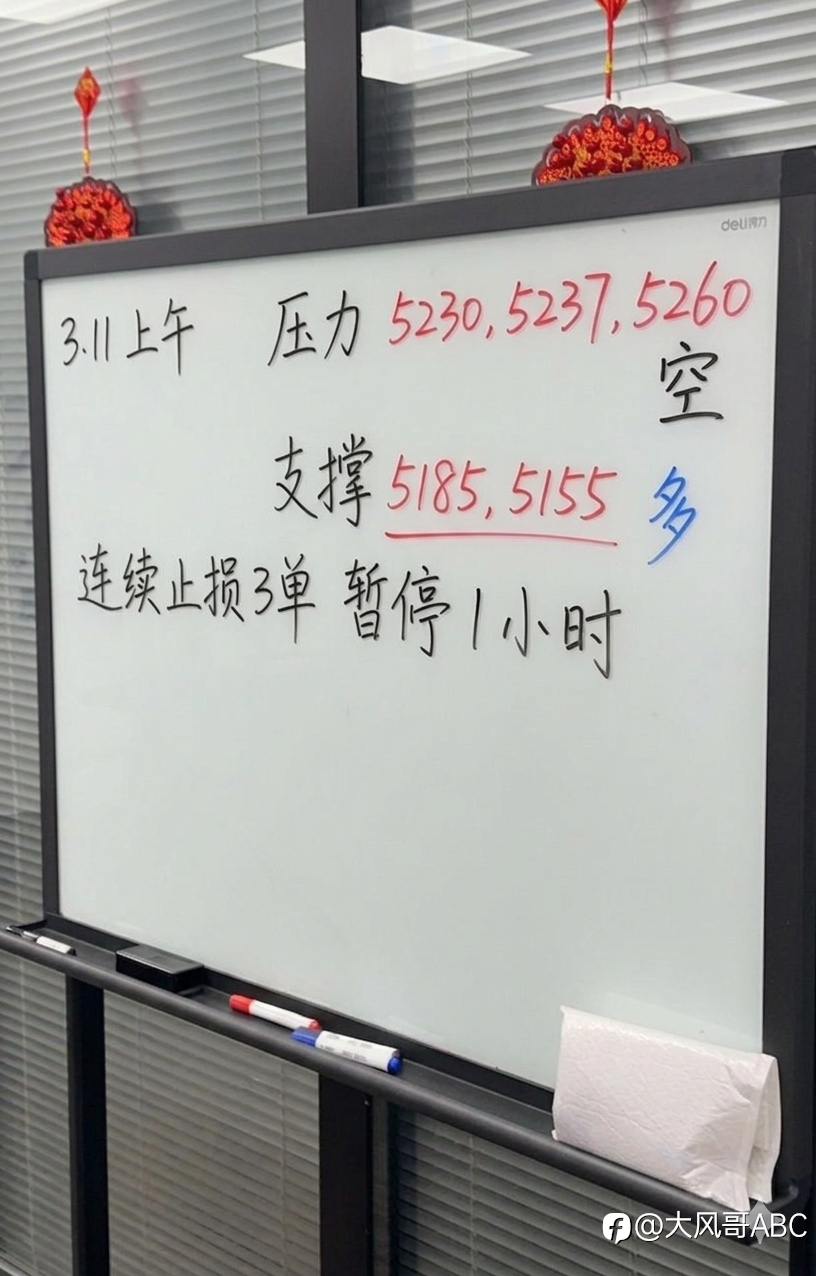 deli得力
3.11上午 压力 5230, 5237, 5260
空
支撑 5185, 5155 多
连续止损3单 暂停1小时
@大风哥ABC